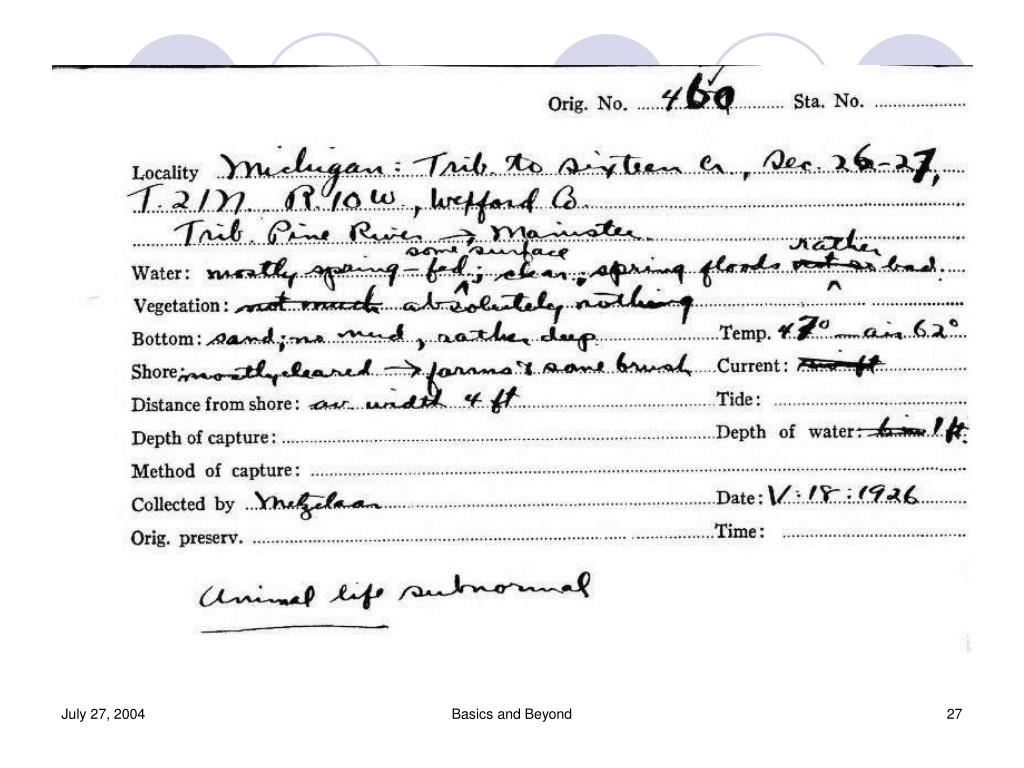 Orig. No. 460 Sta. No.
Locality Michigan: Trib. to Sixteen Cr., Sec. 26-27,
T. 21N. R. 10W, Wexford Co.
Trib. Pine River → Manistee
some surface rather
Water: mostly spring-fed; clear; spring floods not so bad.
Vegetation: not much absolutely nothing
Bottom: sand; no mud, rather deep Temp. 47° air 62°
Shore: mostly cleared → farms; some brush Current: ft
Distance from shore: av. width 4 ft Tide:
Depth of capture: Depth of water: 1 ft.
Method of capture:
Collected by Metzelaar Date: V:18:1926
Orig. preserv. Time:
Animal life subnormal
July 27, 2004 Basics and Beyond 27